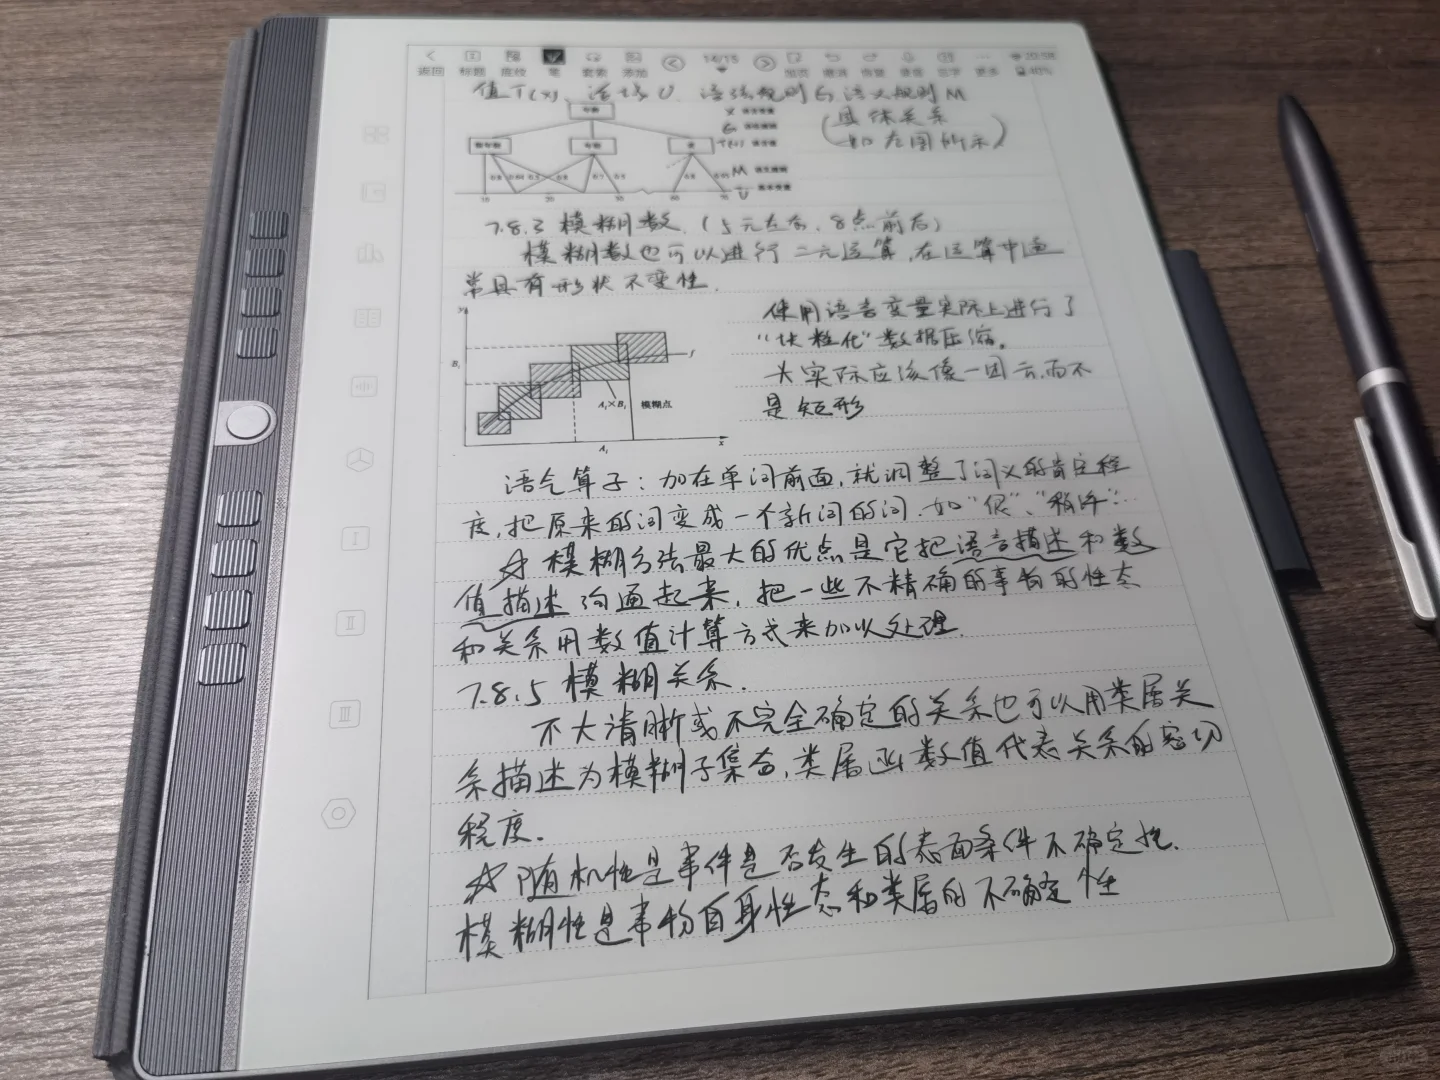 返回 标题 底纹 笔 套索 添加 14/15 加页 撤消 恢复 录音 三字 更多 20:58 40%
值T(x)、论域U、语法规则G、语义规则M
年龄
(具体关系
如左图所示)
G
年轻
老
T(x)
M
U
7.8.3 模糊数.(5元左右,8点前后)
模糊数也可以进行二元运算,在运算中通
常具有形状不变性.
使用语言变量实际上进行了
“块粒化”数据压缩.
大实际应该像一团云,而不
是矩形
y
Bᵢ
f
Aᵢ×Bᵢ 模糊点
Aᵢ
x
语气算子:加在单词前面,就调整了词义的肯定程
度,把原来的词变成一个新词的词.如“很”、“稍许”…
☆模糊方法最大的优点是它把语言描述和数
值描述沟通起来,把一些不精确的事物的性态
和关系用数值计算方式来加以处理.
7.8.5 模糊关系.
不大清晰或不完全确定的关系也可以用类属关
系描述为模糊子集合,类属函数值代表关系的密切
程度.
☆随机性是事件是否发生的表面条件不确定性.
模糊性是事物自身性态和类属的不确定性